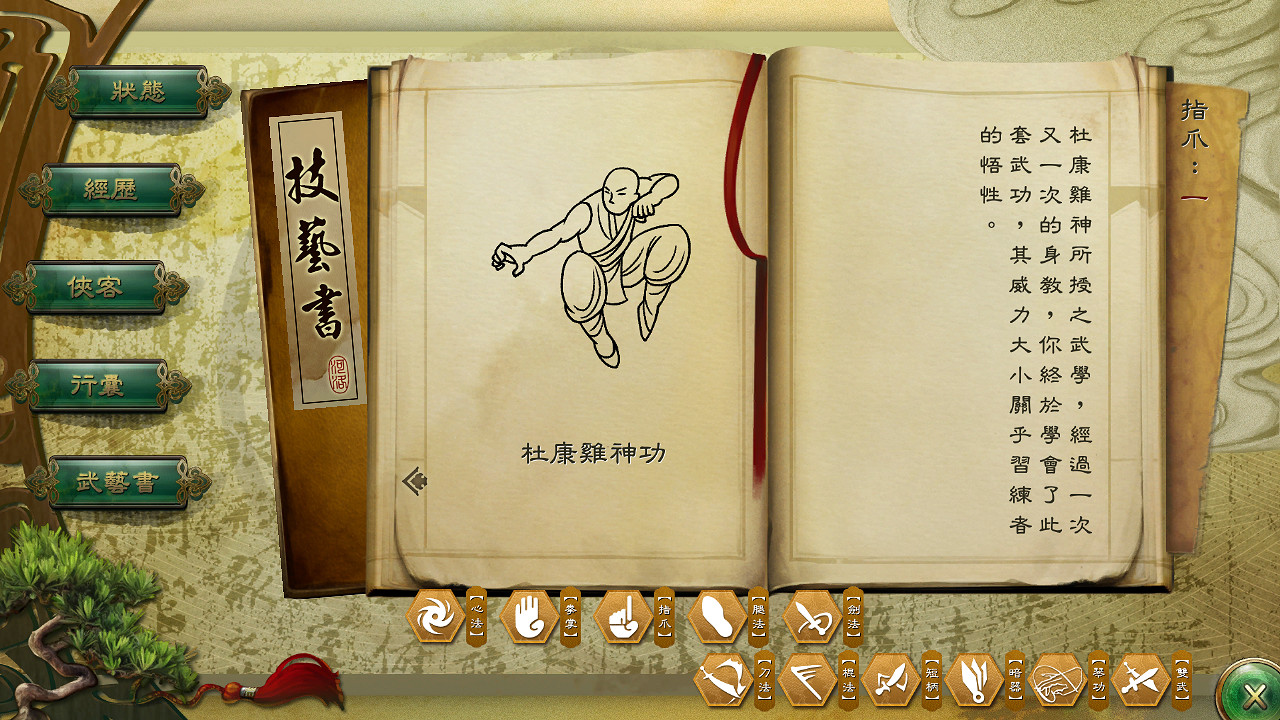 狀態
經歷
俠客
行囊
武藝書
技藝書
河洛
杜康雞神功
杜康雞神所授之武學，經過一次
又一次的身教，你終於學會了此
套武功，其威力大小關乎習練者
的悟性。
指爪：一
【心法】
【拳掌】
【指爪】
【腿法】
【劍法】
【刀法】
【棍法】
【短柄】
【暗器】
【琴功】
【雙武】